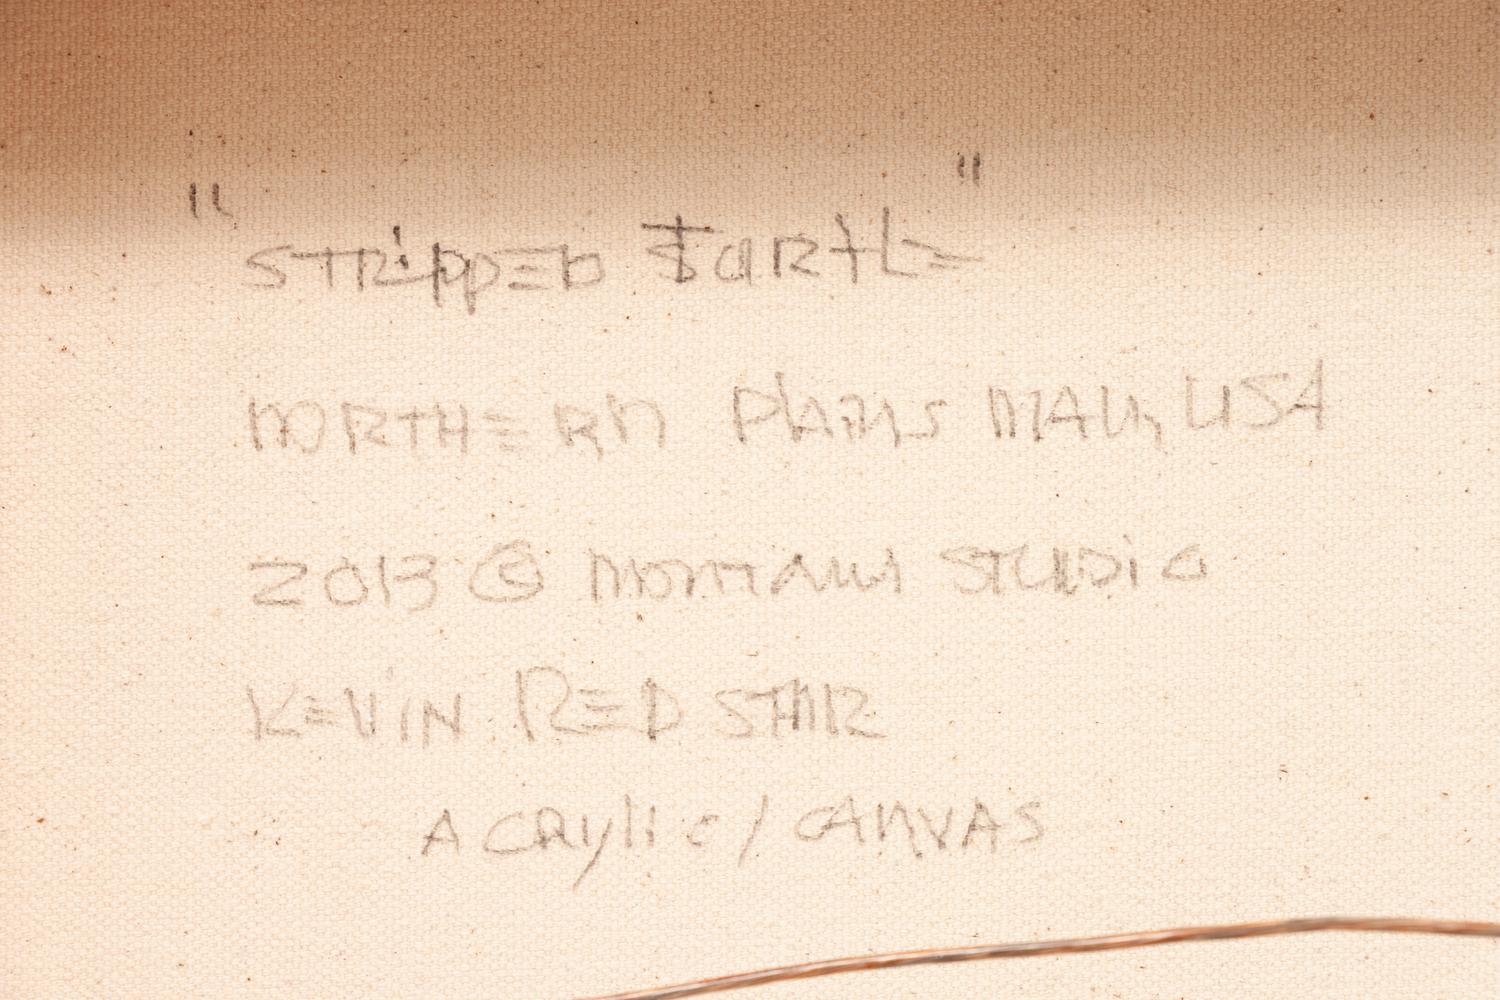 "STRiPPED TURTLE"
NORTHERN PLAINS MAN, USA
2013 © MONTANA STUDiO
KEViN RED STAR
ACRYLiC / CANVAS